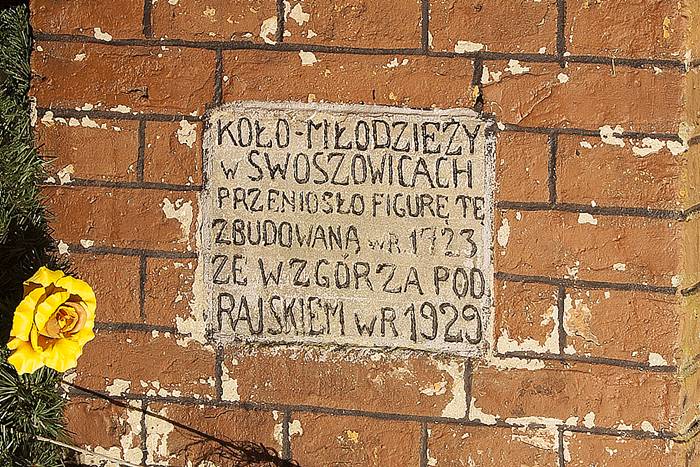 KOŁO-MŁODZIEŻY
W SWOSZOWICACH
PRZENIOSŁO FIGURĘ TĘ
ZBUDOWANĄ W R. 1723
ZE WZGÓRZA POD
RAJSKIEM W R 1929